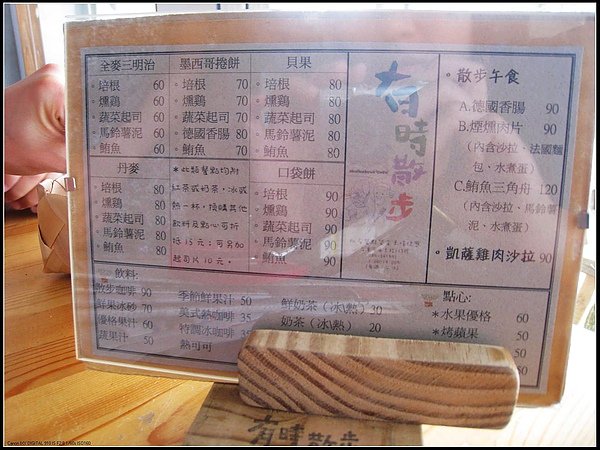 全麥三明治
。培根 60
。燻鷄 60
。蔬菜起司 60
。馬鈴薯泥 60
。鮪魚 60
墨西哥捲餅
。培根 70
。燻鷄 70
。蔬菜起司 70
。德國香腸 80
。鮪魚 70
貝果
。培根 80
。燻鷄 80
。蔬菜起司 80
。馬鈴薯泥 80
。鮪魚 80
有時散步
。散步午食
A.德國香腸 90
B.煙燻肉片 90
(內含沙拉、法國麵
包、水煮蛋)
C.鮪魚三角舟 120
(內含沙拉、馬鈴薯
泥、水煮蛋)
。凱薩雞肉沙拉 90
丹麥
。培根 80
。燻鷄 80
。蔬菜起司 80
。馬鈴薯泥 80
。鮪魚 80
*此類餐點均附
紅茶或奶茶,冰或
熱一杯,換購其他
飲料及點心可折
抵15元;可另加
起司片10元。
口袋餅
。培根 90
。燻鷄 90
。蔬菜起司 90
。馬鈴薯泥 90
。鮪魚 90
飲料:
散步咖啡 90
鮮果冰砂 70
優格果汁 60
蔬果汁 50
季節鮮果汁 50
美式熱咖啡 35
特調冰咖啡 35
熱可可
鮮奶茶(冰\熱) 30
奶茶(冰\熱) 20
點心:
*水果優格 60
*烤蘋果 50
50
50
有時散步